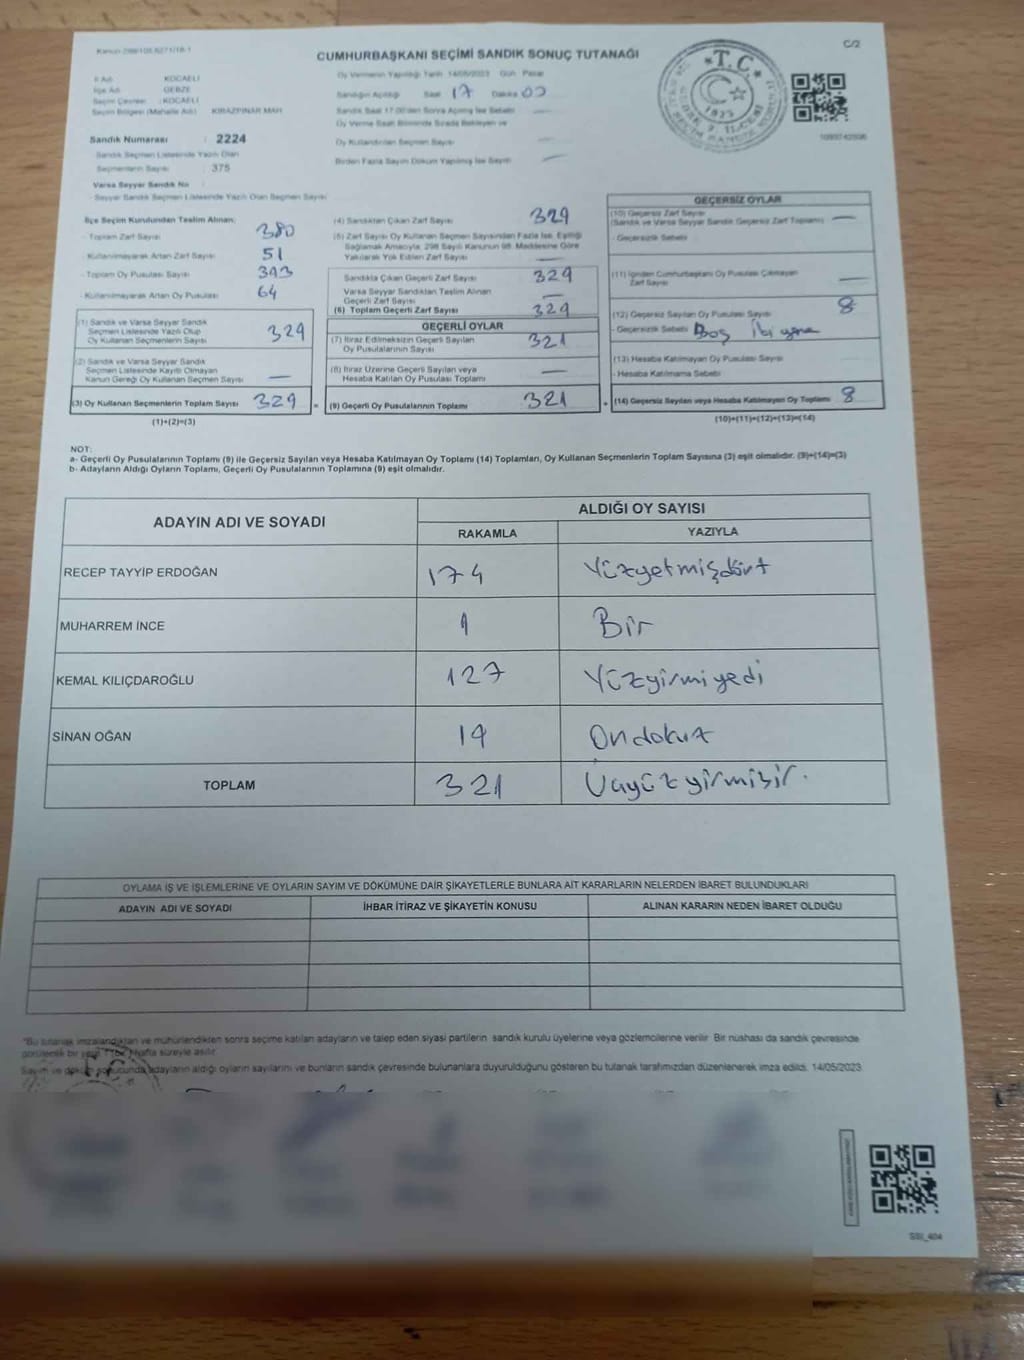 C/2
CUMHURBAŞKANI SEÇİMİ SANDIK SONUÇ TUTANAĞI
Oy Vermenin Yapıldığı Tarih 14/05/2023 Gün Pazar
İl Adı KOCAELİ
İlçe Adı GEBZE
Seçim Çevresi : KOCAELİ
Seçim Bölgesi (Mahalle Adı) KİRAZPINAR MAH
Sandığın Açıldığı Saat 17 Dakika 00
Sandık Saat 17.00'den Sonra Açılmış İse Sebebi
Oy Verme Saati Bitiminde Sırada Bekleyen ve
Oy Kullandırılan Seçmen Sayısı —
Birden Fazla Sayım Döküm Yapılmış İse Sayısı —
T.C.
Sandık Numarası : 2224
Sandık Seçmen Listesinde Yazılı Olan
Seçmenlerin Sayısı : 375
Varsa Seyyar Sandık No
- Seyyar Sandık Seçmen Listesinde Yazılı Olan Seçmen Sayısı
İlçe Seçim Kurulundan Teslim Alınan;
- Toplam Zarf Sayısı 380
- Kullanılmayarak Artan Zarf Sayısı 51
- Toplam Oy Pusulası Sayısı 393
- Kullanılmayarak Artan Oy Pusulası 64
(1) Sandık ve Varsa Seyyar Sandık
Seçmen Listesinde Yazılı Olup
Oy Kullanan Seçmenlerin Sayısı 329
(2) Sandık ve Varsa Seyyar Sandık
Seçmen Listesinde Kayıtlı Olmayan
Kanun Gereği Oy Kullanan Seçmen Sayısı —
(3) Oy Kullanan Seçmenlerin Toplam Sayısı 329
(1)+(2)=(3)
(4) Sandıktan Çıkan Zarf Sayısı 329
(5) Zarf Sayısı Oy Kullanan Seçmen Sayısından Fazla İse, Eşitliği
Sağlamak Amacıyla; 298 Sayılı Kanunun 98. Maddesine Göre
Yakılarak Yok Edilen Zarf Sayısı —
Sandıkta Çıkan Geçerli Zarf Sayısı 329
Varsa Seyyar Sandıktan Teslim Alınan
Geçerli Zarf Sayısı —
(6) Toplam Geçerli Zarf Sayısı 329
GEÇERLİ OYLAR
(7) İtiraz Edilmeksizin Geçerli Sayılan
Oy Pusulalarının Sayısı 321
(8) İtiraz Üzerine Geçerli Sayılan veya
Hesaba Katılan Oy Pusulası Toplamı —
= (9) Geçerli Oy Pusulalarının Toplamı 321
GEÇERSİZ OYLAR
(10) Geçersiz Zarf Sayısı
(Sandık ve Varsa Seyyar Sandık Geçersiz Zarf Toplamı) —
- Geçersizlik Sebebi
(11) İçinden Cumhurbaşkanı Oy Pusulası Çıkmayan
Zarf Sayısı —
(12) Geçersiz Sayılan Oy Pusulası Sayısı 8
Geçersizlik Sebebi Boş
(13) Hesaba Katılmayan Oy Pusulası Sayısı
- Hesaba Katılmama Sebebi
+ (14) Geçersiz Sayılan veya Hesaba Katılmayan Oy Toplamı 8
(10)+(11)+(12)+(13)=(14)
NOT:
a- Geçerli Oy Pusulalarının Toplamı (9) ile Geçersiz Sayılan veya Hesaba Katılmayan Oy Toplamı (14) Toplamları, Oy Kullanan Seçmenlerin Toplam Sayısına (3) eşit olmalıdır. (9)+(14)=(3)
b- Adayların Aldığı Oyların Toplamı, Geçerli Oy Pusulalarının Toplamına (9) eşit olmalıdır.
ADAYIN ADI VE SOYADI ALDIĞI OY SAYISI
RAKAMLA YAZIYLA
RECEP TAYYİP ERDOĞAN 174 Yüzyetmişdört
MUHARREM İNCE 1 Bir
KEMAL KILIÇDAROĞLU 127 Yüzyirmiyedi
SİNAN OĞAN 19 Ondokuz
TOPLAM 321 Üçyüzyirmibir.
OYLAMA İŞ VE İŞLEMLERİNE VE OYLARIN SAYIM VE DÖKÜMÜNE DAİR ŞİKAYETLERLE BUNLARA AİT KARARLARIN NELERDEN İBARET BULUNDUKLARI
ADAYIN ADI VE SOYADI İHBAR İTİRAZ VE ŞİKAYETİN KONUSU ALINAN KARARIN NEDEN İBARET OLDUĞU
*Bu tutanak imzalandıktan ve mühürlendikten sonra seçime katılan adayların ve talep eden siyasi partilerin sandık kurulu üyelerine veya gözlemcilerine verilir. Bir nüshası da sandık çevresinde
görülecek bir yere 1 hafta süreyle asılır.
Sayım ve döküm sonucunda adayların aldığı oyların sayılarını ve bunların sandık çevresinde bulunanlara duyurulduğunu gösteren bu tutanak tarafımızdan düzenlenerek imza edildi. 14/05/2023
SSİ_404